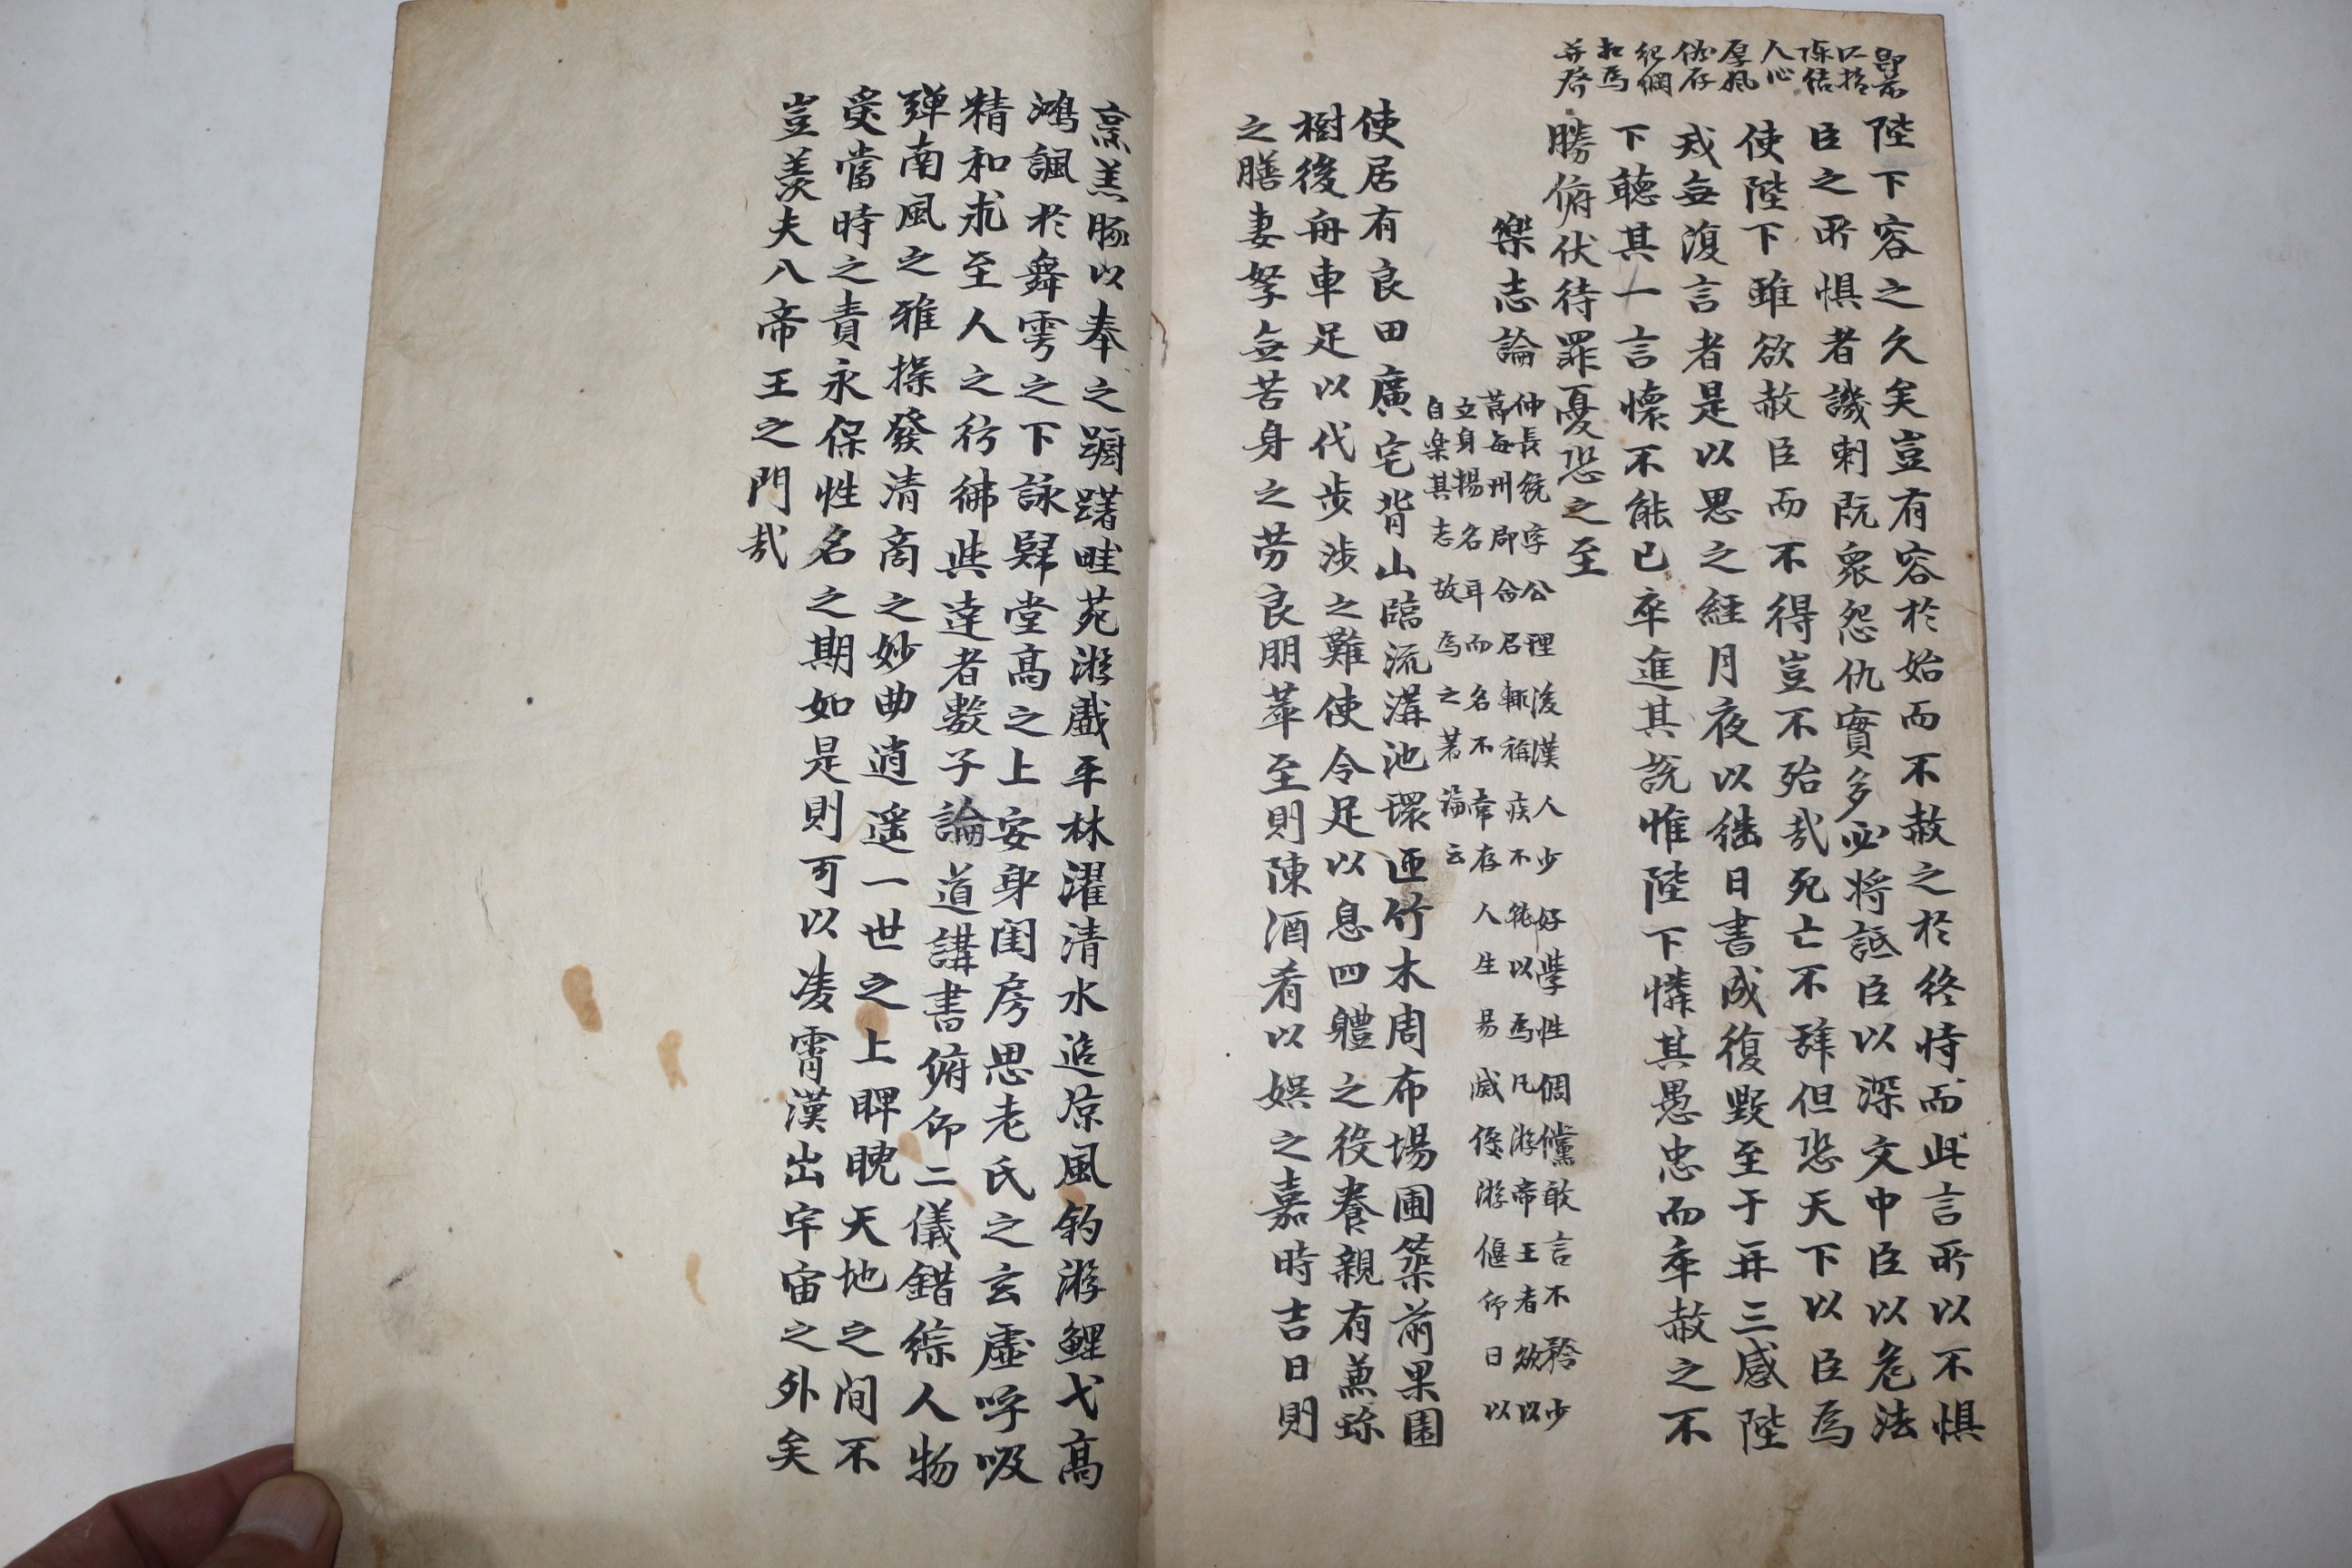 陛下容之久矣豈有容於始而不赦之於終恃而此言所以不惧
臣之所惧者譏刺既衆怨仇實多必將詆臣以深文中臣以危法
使陛下雖欲赦臣而不得豈不殆哉死亡不辞但恐天下以臣爲
戒無復言者是以思之經月夜以継日書成復毀至于再三感陛
下聽其一言懐不能已卒進其說惟陛下憐其愚忠而卒赦之不
勝俯伏待罪憂恐之至
樂志論
仲長統字公理後漢人少好學性倜儻敢言不矜少
節每州郡命召輒稱疾不就以爲凡游帝王者欲以
立身揚名耳而名不常存人生易滅優游偃仰日以
自樂其志故爲之著論云
使居有良田廣宅背山臨流溝池環匝竹木周布場圃築前果園
樹後舟車足以代步涉之難使令足以息四體之役養親有兼珎
之膳妻孥無苦身之勞良朋萃至則陳酒肴以娯之嘉時吉日則
烹羔豚以奉之躕躇畦苑游戲平林濯清水追凉風釣游鯉弋高
鴻諷於舞雩之下詠歸堂高之上安身閨房思老氏之玄虛呼吸
精和求至人之彷彿與達者數子論道講書俯仰二儀錯綜人物
弾南風之雅操發清商之妙曲逍遥一世之上睥睨天地之間不
受當時之責永保性名之期如是則可以凌霄漢出宇宙之外矣
豈羨夫入帝王之門哉
即苏
以於
陈結
人心
厚風
俗存
紀綱